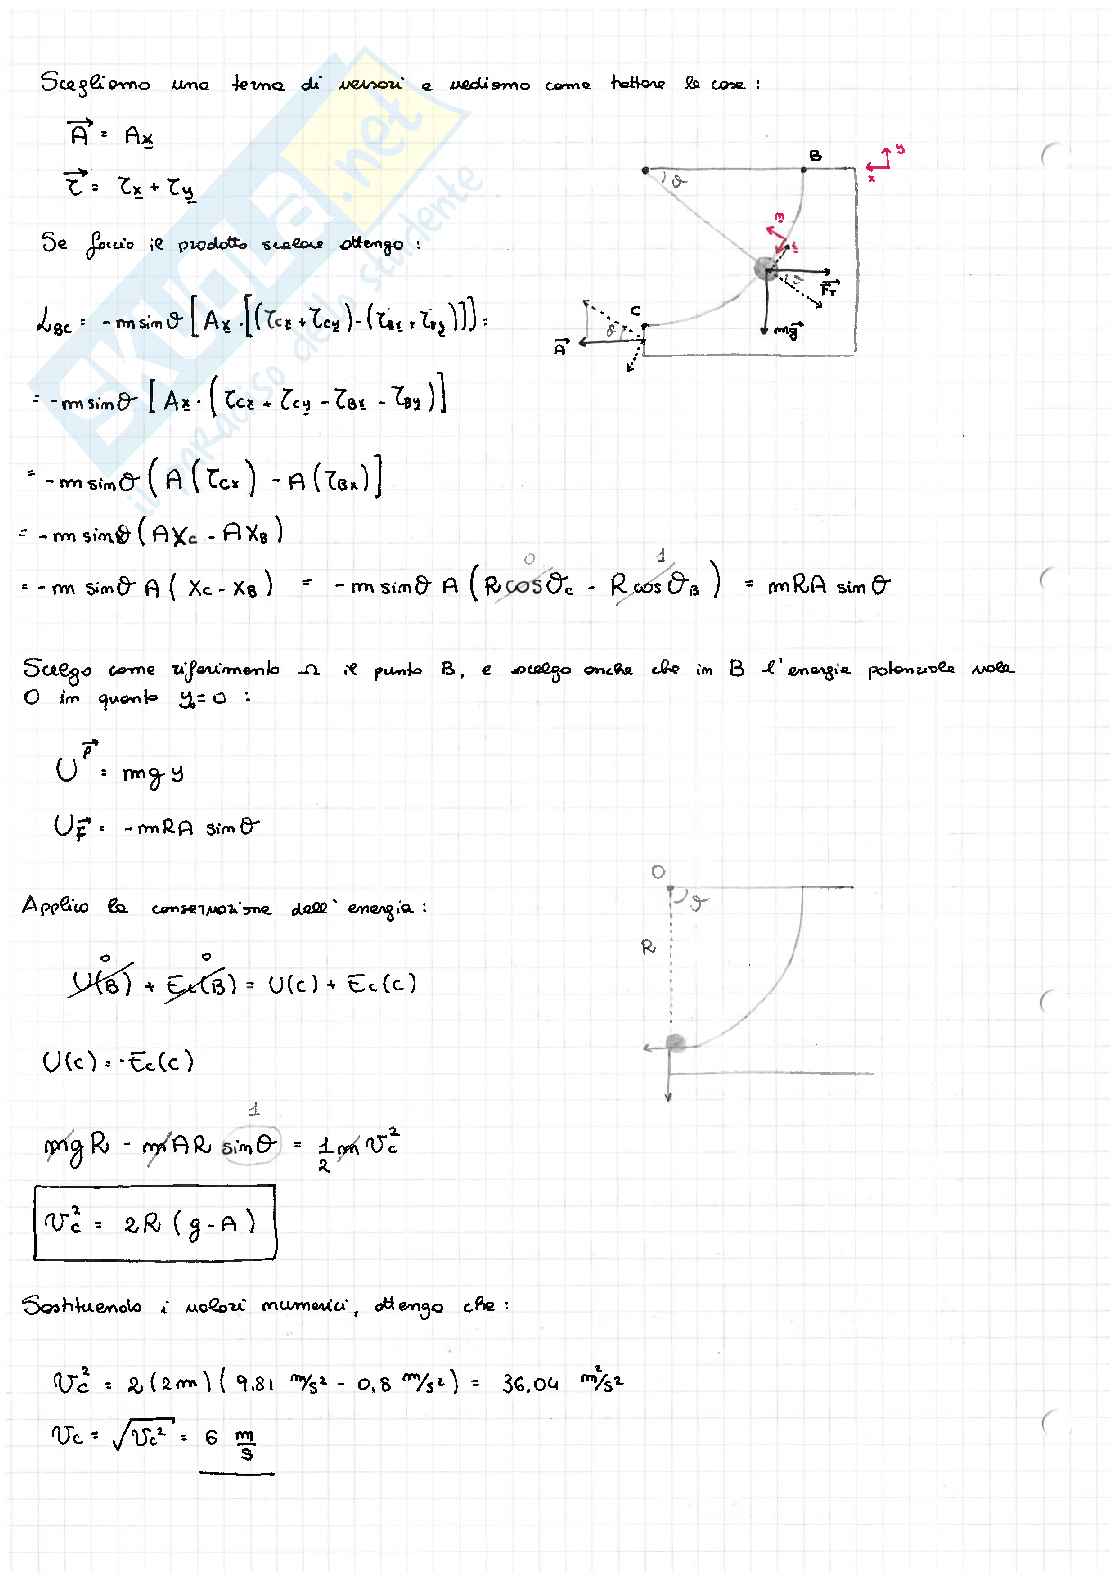 Scegliamo una terna di versori e vediamo come trattare le cose :
A⃗ = Ax
τ⃗ = τx + τy
Se faccio il prodotto scalare ottengo :
L_BC = -m sinθ [ Ax · [(τcx + τcy) - (τBx + τBy)]] =
= -m sinθ [ Ax · ( τcx + τcy - τBx - τBy)]
= -m sinθ ( A (τcx) - A (τBx) ]
= -m sinθ ( AXc - AXB )
= -m sinθ A ( Xc - XB ) = -m sinθ A ( R cosθc - R cosθB ) = mRA sinθ
0 1
Scelgo come riferimento Ω il punto B, e scelgo anche che in B l'energia potenziale vale
0 in quanto y₀ = 0 :
U^P⃗ = mg y
U_F⃗ = -mRA sinθ
Applico la conservazione dell'energia :
U(B) + Ec(B) = U(c) + Ec(c)
0 0
U(c) = -Ec(c)
mgR - mAR sinθ = 1/2 m Vc²
1
Vc² = 2R ( g - A )
Sostituendo i valori numerici, ottengo che :
Vc² = 2 (2m) ( 9,81 m/s² - 0,8 m/s² ) = 36,04 m²/s²
Vc = √Vc² = 6 m/s
B
y
x
θ
F⃗τ
mg⃗
C
A⃗
θ
O
θ
R
SKUOLA.net
il paradiso dello studente